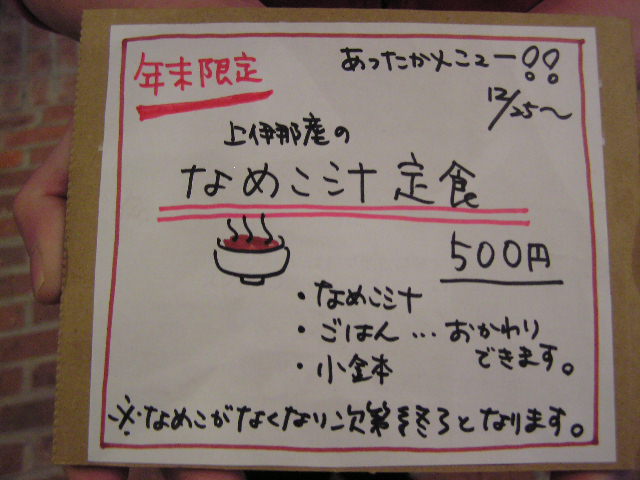 年末限定
あったかメニュー!!
12/25〜
上伊那産の
なめこ汁定食
500円
・なめこ汁
・ごはん…おかわり
できます。
・小鉢
※なめこがなくなり次第終了となります。